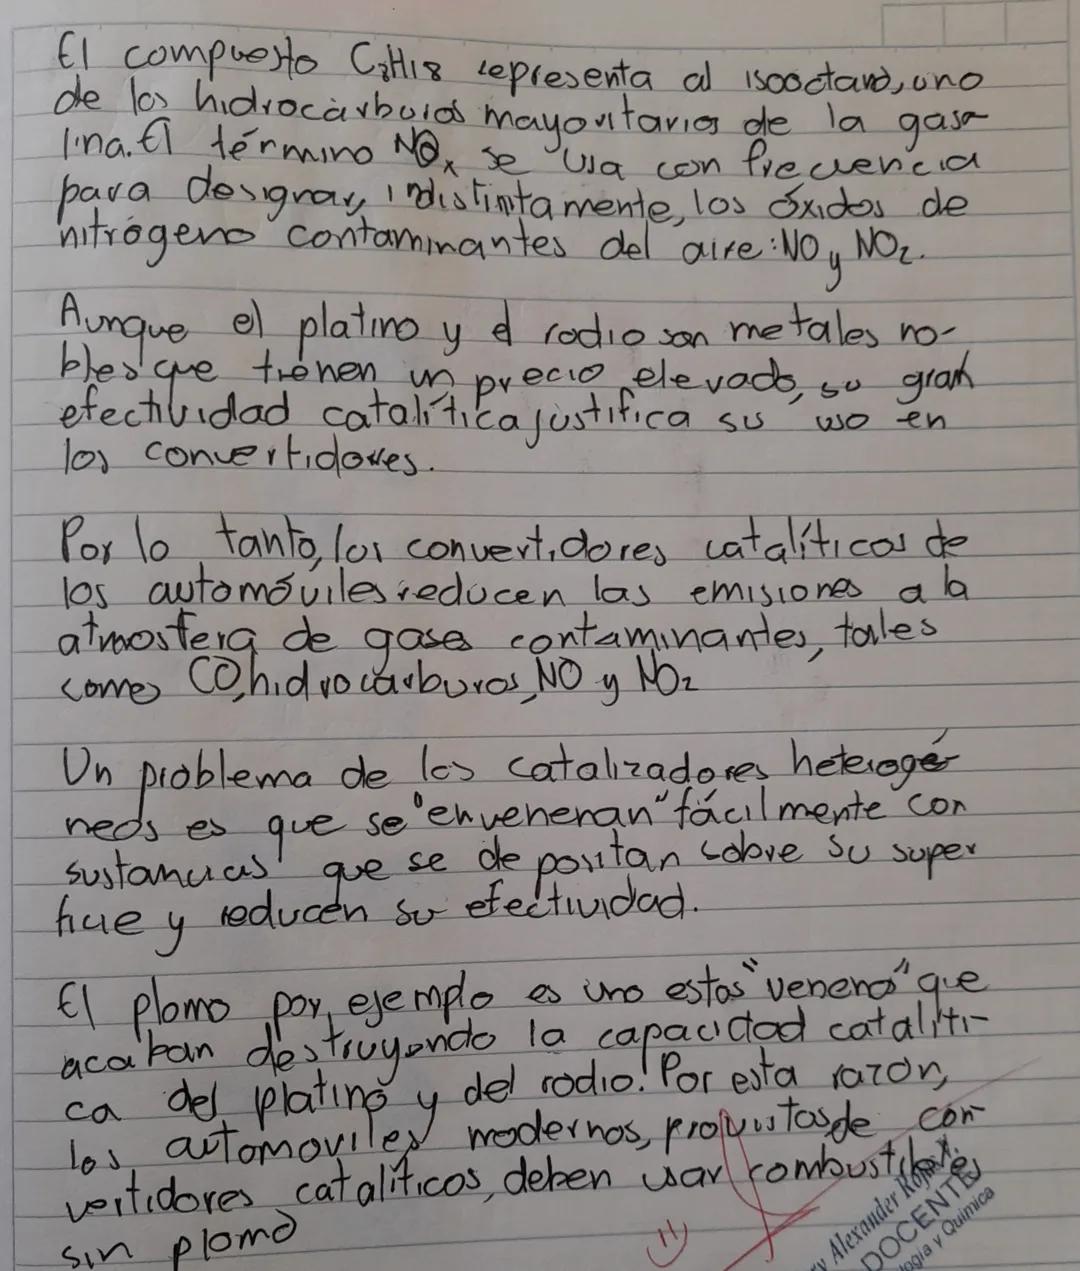 El compuesto C8H18 representa al isooctano, uno
de los hidrocarburos mayoritarios de la gaso
lina. El término NOx se usa con frecuencia
para designar, indistintamente, los óxidos de
nitrógeno contaminantes del aire: NO y NO2.
Aunque el platino y el rodio son metales no-
bles que tienen un precio elevado, su gran
efectividad catalítica justifica su uso en
los convertidores.
Por lo tanto, los convertidores catalíticos de
los automóviles reducen las emisiones a la
atmosfera de gases contaminantes, tales
comes CO, hidrocarburos, NO y NO2
Un problema de los catalizadores heterogé
neos es que se "envenenan" fácilmente con
sustancias que se depositan sobre su super
ficie y reducen su efectividad.
El plomo por, ejemplo es uno estos "veneno" que
acaban destruyendo la capacidad catalíti-
ca del platino y del rodio. Por esta razón,
los automoviles modernos, provistos de con-
vertidores catalíticos, deben usar combustibles
sin plomo
Alexander Rojas
DOCENTE
y Química